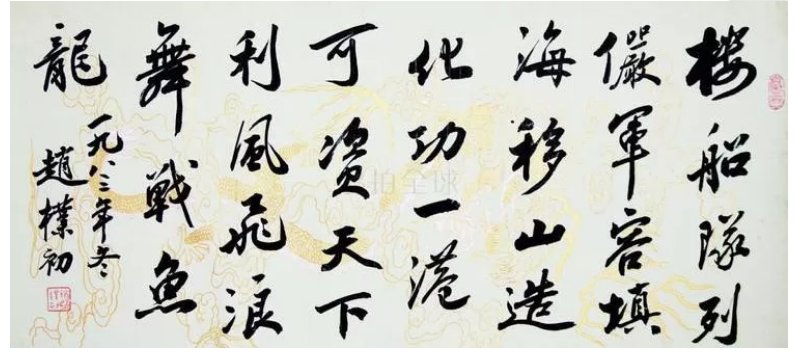 楼船隊列
儼軍容填
海移山造
化功一港
可資天下
利風飛浪
舞戰魚
龍
一九八三年冬
趙樸初
拍全球